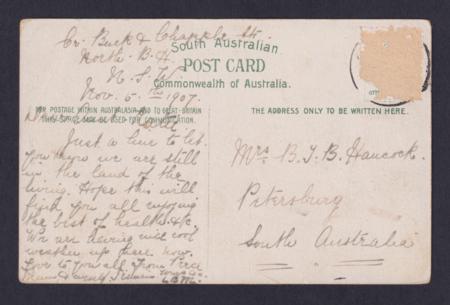 Cr. Buck & Chapple Sts.
North B. H.
N. S. W.
Nov. 5th 1907.
South Australian
POST CARD
Commonwealth of Australia.
FOR POSTAGE WITHIN AUSTRALASIA AND TO GREAT BRITAIN
THIS SPACE MAY BE USED FOR COMMUNICATION.
THE ADDRESS ONLY TO BE WRITTEN HERE.
Just a line to let
you know we are still
in the land of the
living. Hope this will
find you all enjoying
the best of health &c.
We are having nice cool
weather up here now.
Love to you all from
Mrs. B. J. B. Hancock.
Petersburg
South Australia